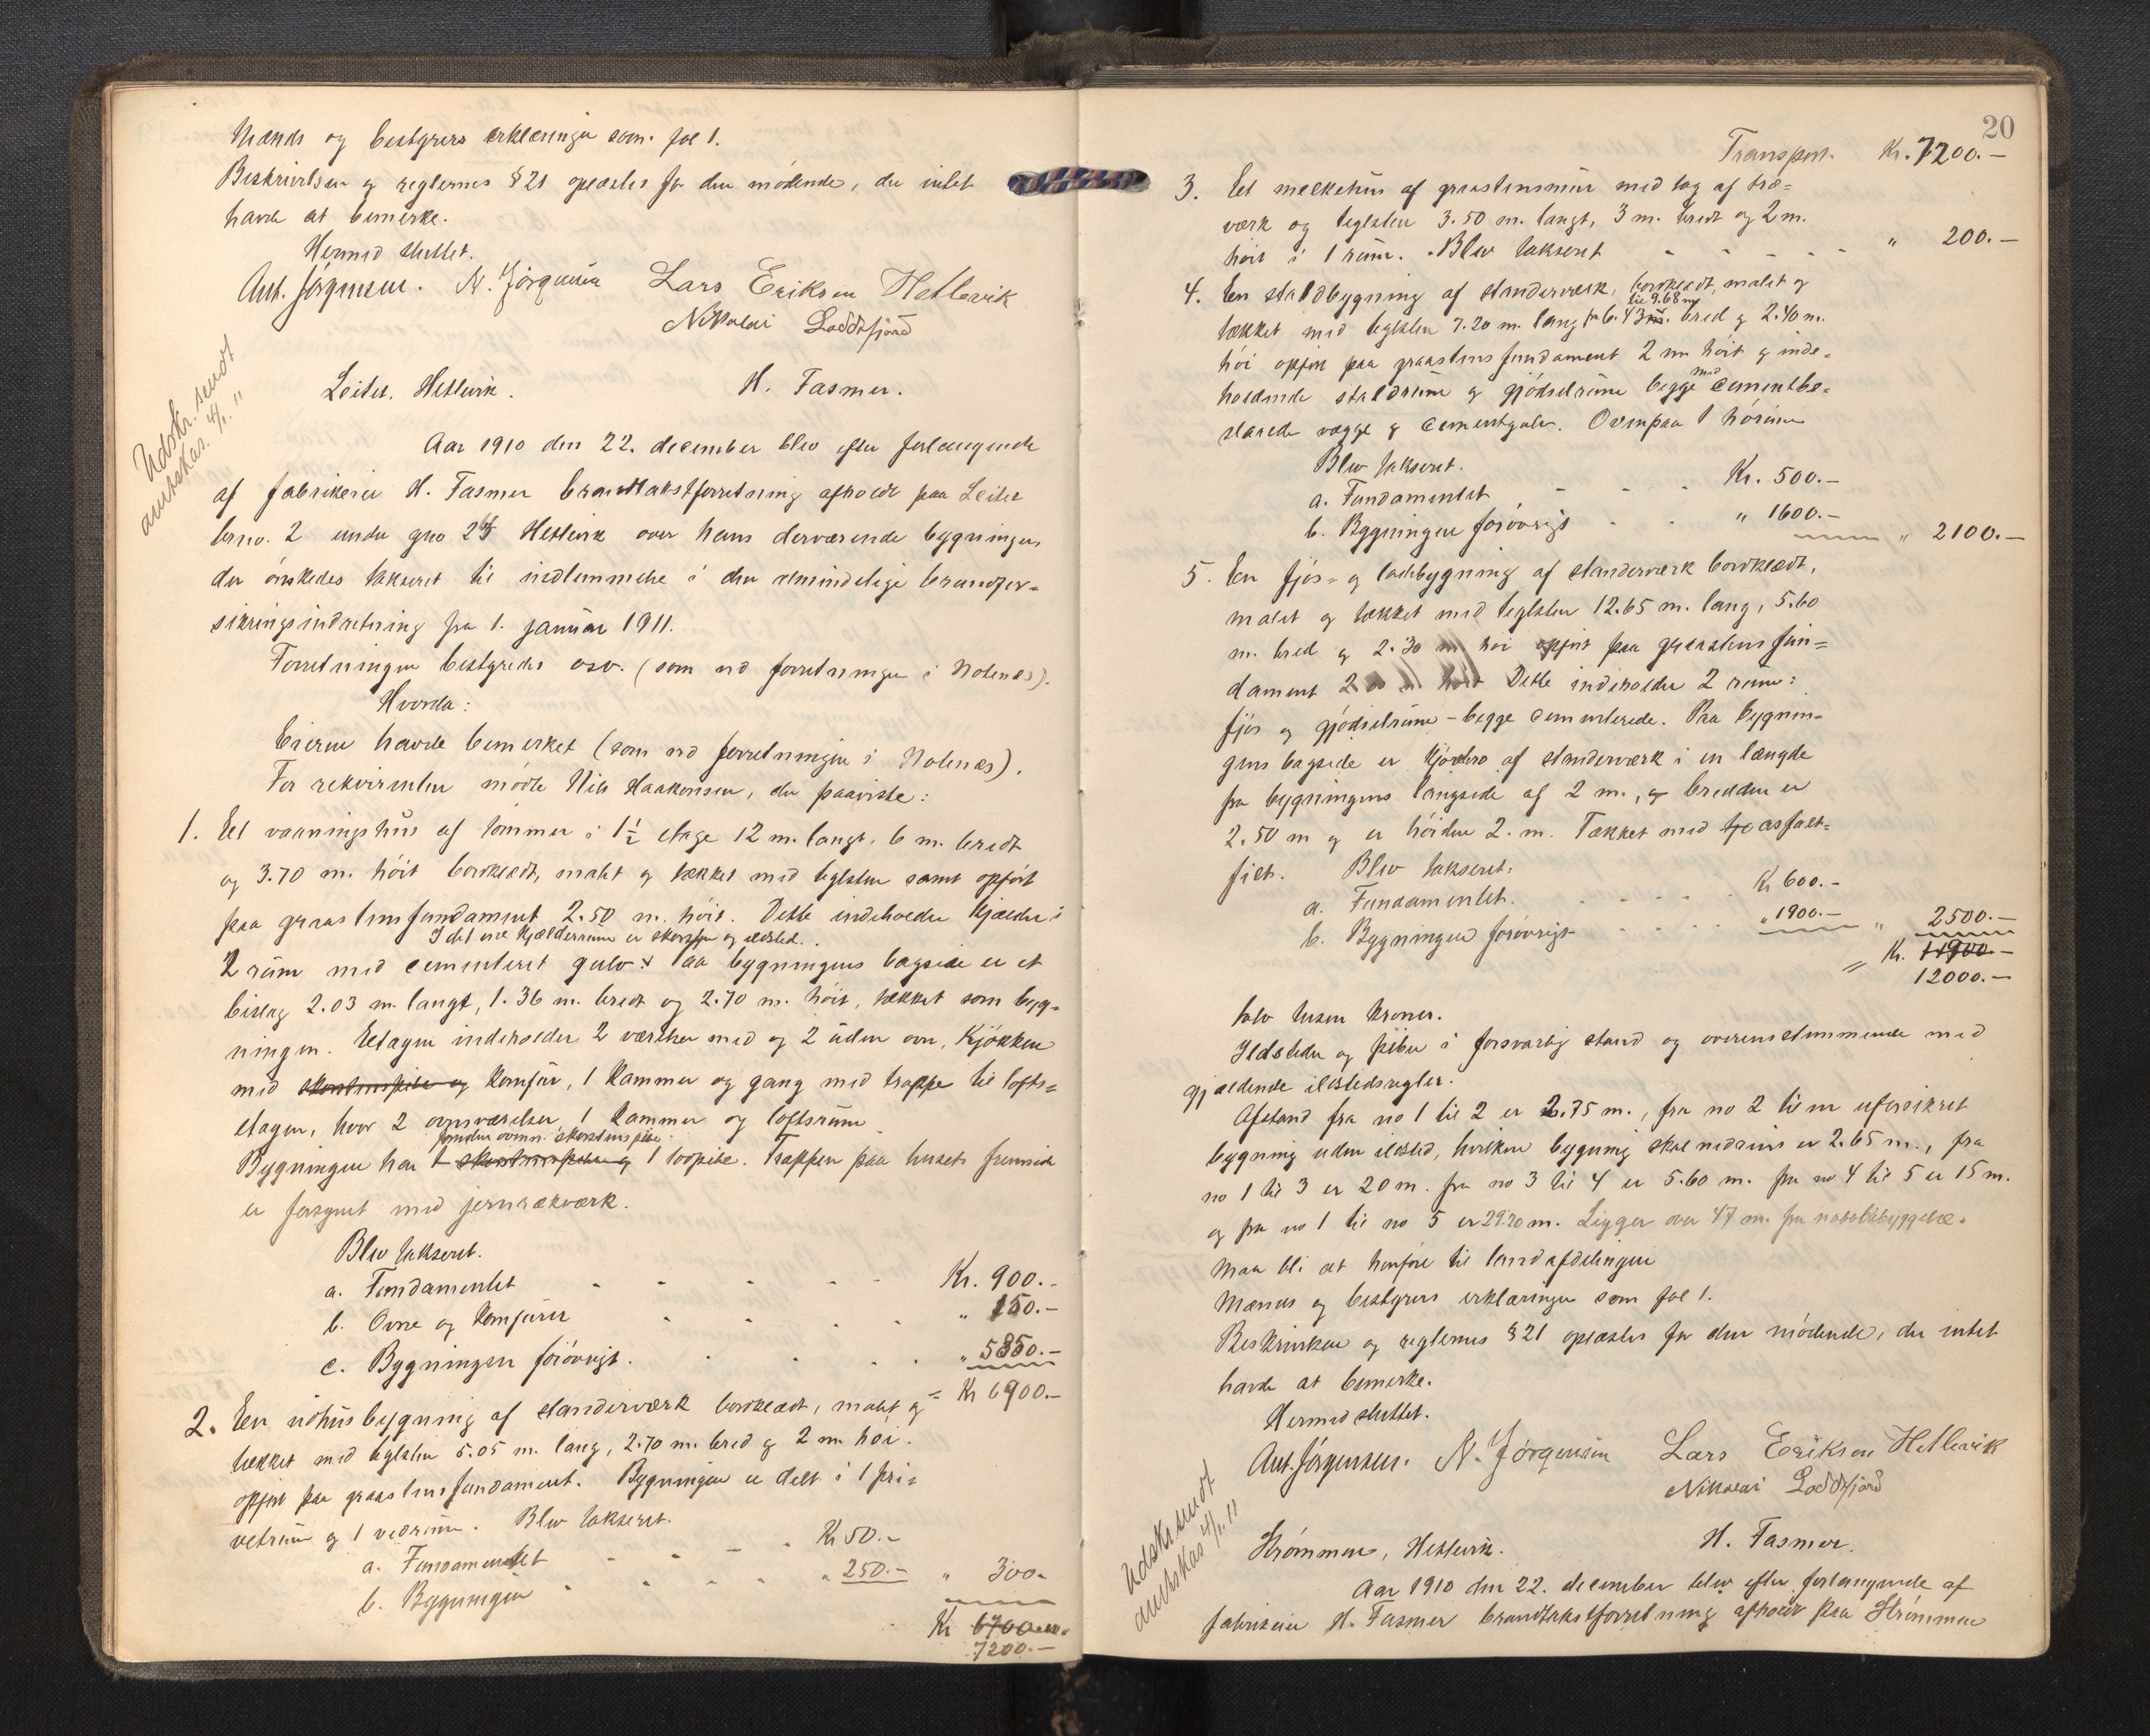 Mænds og bestyrers erklæringer som fol 1.
Beskrivelsen og reglernes § 21 oplæstes for den mødende, der intet
havde at bemerke.
Hermed sluttet.
Ant. Jörgensen. N. Jörgensen Lars Eriksen Hetlevik
Nikolai Loddefjord
Udskr. sendt
amtskas. 4/1. 11
Leitet, Hetlevik. H. Fasmer.
Aar 1910 den 22. december blev efter forlangende
af fabrikeier H. Fasmer brandtakstforretning afholdt paa Leitet
brno. 2 under gno 25 Hetlevik over hans derværende bygninger,
der ønskedes takseret til indlemmelse i den almindelige brandfor-
sikringsindretning fra 1. januar 1911.
Forretningen bestyredes osv. (som ved forretningen i Notenes).
Hvorda:
Eieren havde bemerket (som ved forretningen i Notenes).
For rekvirenten mødte Nils Haakonsen, der paaviste:
1. Et vaaningshus af tømmer i 1½ etage 12 m. langt, 6 m. bredt
og 3.70 m. høit bordklædt, malet og tækket med teglsten samt opført
paa graastensfundament 2.50 m. høit. Dette indeholder kjælder i
I det ene kjælderrum er skorsten og ildsted.
2 rum med cementeret gulv. x Paa bygningens bagside er et
bislag 2.03 m. langt, 1.36 m. bredt og 2.70 m. høit, tækket som byg-
ningen. Etagen indeholder 2 værelser med og 2 uden ovn, kjøkken
med skorstenspibe og komfur, 1 kammer og gang med trappe til lofts-
etagen, hvor 2 ovnsværelser, 1 kammer og loftsrum.
foruden ovenn. skorstenspibe
Bygningen har 1 skorstenspibe og 1 løbpibe. Trappen paa husets fremside
er forsynet med jernrækværk.
Blev takseret.
a. Fundamentet - - - - - Kr. 900.-
b. Ovne og komfurer . . . . " 150.-
c. Bygningen forøvrigt . . . . . " 5850.-
= Kr 6900.-
2. En udhusbygning af standerværk bordklædt, malet og
tækket med teglsten 5.05 m. lang, 2.70 m. bred og 2 m. høi.
opført paa graastensfundament. Bygningen er delt i 1 pri-
vetrum og 1 vedrum. Blev takseret.
a. Fundamentet - - - - Kr 50.-
b. Bygningen . . . . " 250.- " 300.-
Kr 6700.-
7200.-
20
Transport. Kr. 7200.-
3. Et melkehus af graastensmur med tag af træ-
værk og teglsten 3.50 m. langt, 3 m. bredt og 2 m.
høit i 1 rum. Blev takseret - - - - " 200.-
4. En staldbygning af standerværk, bordklædt, malet og
til 9.68 m
tækket med teglsten 7.20 m. lang fra 6.43 m. bred og 2.40 m.
høi opført paa graastensfundament 2 m. høit og inde-
med
holdende staldrum og gjødselrum begge cementbe-
slaaede vægge og cementgulv. Ovenpaa 1 hørum
Blev takseret.
a. Fundamentet . - - - Kr. 500.-
b. Bygningen forøvrigt . . " 1600.- " 2100.-
5. En fjøs- og ladebygning af standerværk bordklædt,
malet og tækket med teglsten 12.65 m. lang, 5.60
m. bred og 2.30 m høi opført paa graastensfun-
dament 2 m høit Dette indeholder 2 rum:
fjøs og gjødselrum - begge cementerede. Paa bygnin-
gens bagside er kjørebro af standerværk i en længde
fra bygningens langside af 2 m., og bredden er
2.50 m og er høiden 2. m. Tækket med asfalt-
filt. Blev takseret:
a. Fundamentet. . . . . . Kr 600.-
b. Bygningen forøvrigt . . . . " 1900.- " 2500.-
= Kr. 11900.-
12000.-
tolv tusen kroner.
Ildsteder og piber i forsvarlig stand og overensstemmende med
gjældende ildstedsregler.
Afstand fra no 1 til 2 er 2.75 m., fra no 2 til en uforsikret
bygning uden ildsted, hvilken bygning skal nedrives er 2.65 m., fra
no 1 til 3 er 20 m. fra no 3 til 4 er 5.60 m. fra no 4 til 5 er 15 m.
og fra no 1 til no 5 er 29.70 m. Ligger over 47 m. fra nabobebyggelse.
Maa bli at henføre til landafdelingen
Mænds og bestyrers erklæringer som fol 1.
Beskrivelsen og reglernes § 21 oplæstes for den mødende, der intet
havde at bemerke.
Hermed sluttet.
Ant. Jörgensen. N. Jörgensen Lars Eriksen Hetlevik
Nikolai Loddefjord
Udskr. sendt
amtskas 4/1. 11
Strømmen, Hetlevik. H. Fasmer.
Aar 1910 den 22. december blev efter forlangende af
fabrikeier H. Fasmer brandtakstforretning afholdt paa Strømmen